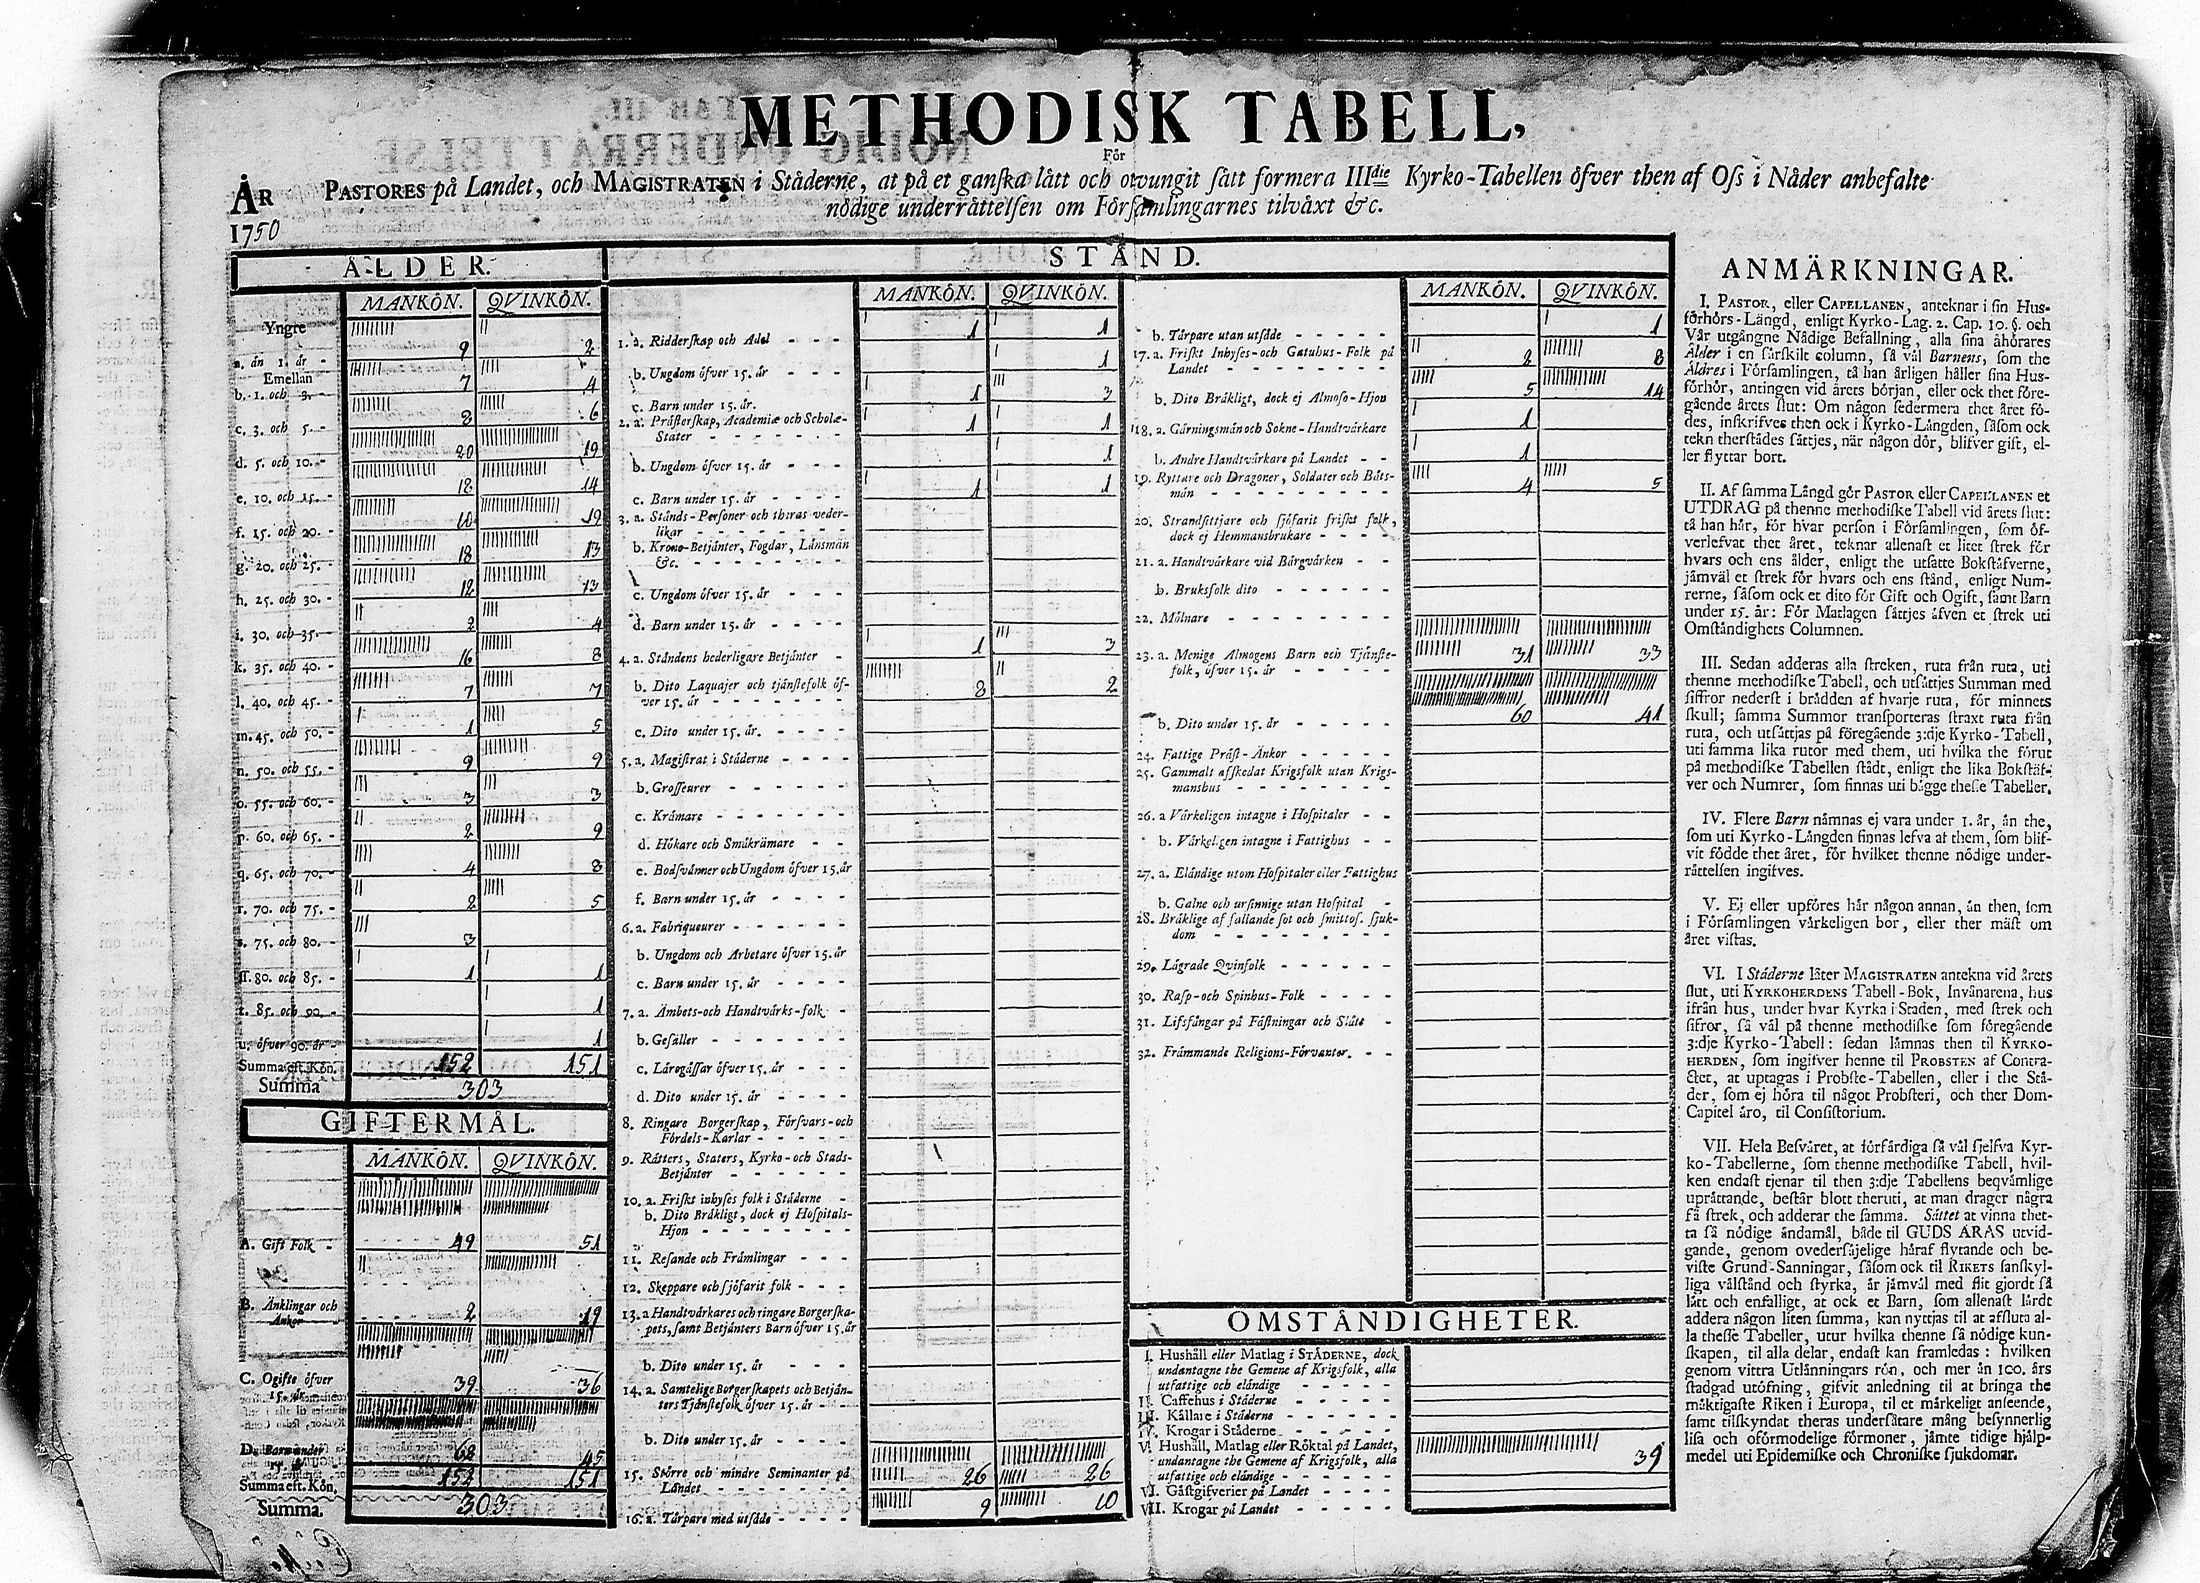 METHODISK TABELL,
För
ÅR
1750
PASTORES på Landet, och MAGISTRATEN i Städerne, at på et ganska lätt och otvungit sätt formera IIIdie Kyrko-Tabellen öfver then af Oss i Nåder anbefalte
nödige underrättelsen om Församlingarnes tilväxt &c.
ÅLDER.
MANKÖN. QVINKÖN.
Yngre
a. än 1. år - 9 2
Emellan
b. 1. och 3. - 7 4
c. 3. och 5. - 8 6
d. 5. och 10. - 20 19
e. 10. och 15. - 18 14
f. 15. och 20. - 10 19
g. 20. och 25. - 18 13
h. 25. och 30. - 12 13
i. 30. och 35. - 2 4
k. 35. och 40. - 16 8
l. 40. och 45. - 7 7
m. 45. och 50. - 1 5
n. 50. och 55. - 9 9
o. 55. och 60. - 3 3
p. 60. och 65. - 2 9
q. 65. och 70. - 4 8
r. 70. och 75. - 2 5
s. 75. och 80. - 3
ss. 80. och 85. - 1 1
t. 85. och 90. - 1
u. öfver 90. år - 1
Summa eft. Kön. 152 151
Summa 303
GIFTERMÅL.
MANKÖN. QVINKÖN.
A. Gift Folk - 49 51
B. Änklingar och
Änkor 2 19
C. Ogifte öfver
15. år 39 36
D. Barn under
15. år 62 45
Summa eft. Kön, 152 151
Summa. 303
STÅND.
MANKÖN. QVINKÖN.
1. a. Ridderskap och Adel - - - 1 1
b. Ungdom öfver 15. år - - - 1
c. Barn under 15. år. 1 3
2. a. Prästerskap, Academiæ och Scholæ-
Stater - - - 1 1
b. Ungdom öfver 15. år - - - 1
c. Barn under 15. år - - - 1 1
3. a. Stånds-Personer och theras veder-
likar - - -
b. Krono-Betjänter, Fogdar, Länsmän
&c. - - -
c. Ungdom öfver 15. år - - -
d. Barn under 15. år - - -
4. a. Ståndens hederligare Betjänter - 1 3
b. Dito Laquajer och tjänstefolk öf-
ver 15. år - - - 8 2
c. Dito under 15. år. - - -
5. a. Magistrat i Städerne - - -
b. Grosseurer - - -
c. Krämare - - -
d. Hökare och Småkrämare - -
e. Bodsvänner och Ungdom öfver 15. år
f. Barn under 15. år - - -
6. a. Fabriqueurer - - -
b. Ungdom och Arbetare öfver 15. år
c. Barn under 15. år - - -
7. a. Ämbets-och Handtvärks-folk -
b. Gesäller - - -
c. Lärogåssar öfver 15. år - - -
d. Dito under 15. år - - -
8. Ringare Borgerskap, Försvars-och
Fördels-Karlar - - -
9. Rätters, Staters, Kyrko-och Stads-
Betjänter - - -
10. a. Friskt inhyses folk i Städerne -
b. Dito Bräkligt, dock ej Hospitals-
Hjon - - -
11. Resande och Främlingar - - -
12. Skeppare och sjöfarit folk - - -
13. a Handtvärkares och ringare Borgerska-
pets, samt Betjänters Barn öfver 15. år
b. Dito under 15. år - - -
14. a. Samtelige Borgerskapets och Betjän-
ters Tjänstefolk öfver 15. år -
b. Dito under 15. år - - -
15. Större och mindre Seminanter på
Landet - - - 26 26
16. a. Tårpare med utsäde - - - 9 10
MANKÖN. QVINKÖN.
b. Tårpare utan utsäde - - - 1
17. a. Friskt Inhyses-och Gatuhus-Folk på
Landet - - - 2 8
b. Dito Bräkligt, dock ej Almoso-Hjon 5 14
18. a. Gärningsmän och Sokne-Handtvärkare 1
b. Andre Handtvärkare på Landet - - 1
19. Ryttare och Dragoner, Soldater och Båts-
män - - - 4 5
20. Strandsittjare och sjöfarit friskt folk,
dock ej Hemmansbrukare - - -
21. a. Handtvärkare vid Bärgvärken - -
b. Bruksfolk dito - - -
22. Mölnare - - -
23. a. Menige Almogens Barn och Tjänste-
folk, öfver 15. år - - - 31 33
b. Dito under 15. år - - - 60 41
24. Fattige Präst-Änkor - - -
25. Gammalt afskedat Krigsfolk utan Krigs-
manshus - - -
26. a Värkeligen intagne i Hospitaler - -
b. Värkeligen intagne i Fattighus - -
27. a. Eländige utom Hospitaler eller Fattighus
b. Galne och ursinnige utan Hospital -
28. Bräklige af fallande sot och smittos. sjuk-
dom - - -
29. Lägrade Qvinfolk - - -
30. Rasp-och Spinhus-Folk - - -
31. Lifsfångar på Fästningar och Slätt -
32. Främmande Religions-Förvanter. - -
OMSTÄNDIGHETER.
I. Hushåll eller Matlag i STÄDERNE, dock
undantagne the Gemene af Krigsfolk, alla
utfattige och eländige - - -
II. Caffehus i Städerne - - -
III. Källare i Städerne - - -
IV. Krogar i Städerne - - -
V. Hushåll, Matlag eller Röktal på Landet,
undantagne the Gemene af Krigsfolk, alla
utfattige och eländige - - - 39
VI. Gästgifverier på Landet - - -
VII. Krogar på Landet - - -
ANMÄRKNINGAR.
I. PASTOR, eller CAPELLANEN, antecknar i sin Hus-
förhörs-Längd, enligt Kyrko-Lag. 2. Cap. 10. §. och
Vår utgångne Nådige Befallning, alla sina åhörares
Ålder i en särskilt column, så väl Barnens, som the
Äldres i Församlingen, tå han årligen håller sina Hus-
förhör, antingen vid årets början, eller ock thet före-
gående årets slut: Om någon sedermera thet året fö-
des, inskrifves then ock i Kyrko-Längden, såsom ock
tekn therstädes sättjes, när någon dör, blifver gift, el-
ler flyttar bort.
II. Af samma Längd gör PASTOR eller CAPELLANEN et
UTDRAG på thenne methodiske Tabell vid årets slut:
tå han här, för hvar person i Församlingen, som öf-
verlefvat thet året, teknar allenast et litet strek för
hvars och ens ålder, enligt the utsatte Bokstäfverne,
jämväl et strek för hvars och ens stånd, enligt Num-
rerne, såsom ock et dito för Gift och Ogift, samt Barn
under 15. år: För Matlagen sättjes äfven et strek uti
Omständighets Columnen.
III. Sedan adderas alla streken, ruta från ruta, uti
thenne methodiske Tabell, och utsättjes Summan med
siffror nederst i brädden af hvarje ruta, för minnets
skull; samma Summor transporteras straxt ruta från
ruta, och utsättjas på föregående 3:dje Kyrko-Tabell,
uti samma lika rutor med them, uti hvilka the förut
på methodiske Tabellen städt, enligt the lika Bokstäf-
ver och Numrer, som finnas uti bägge thesse Tabeller.
IV. Flere Barn nämnas ej vara under 1. år, än the,
som uti Kyrko-Längden finnas lefva af them, som blif-
vit födde thet året, för hvilket thenne nödige under-
rättelsen ingifves.
V. Ej eller upföres här någon annan, än then, som
i Församlingen värkeligen bor, eller ther mäst om
året vistas.
VI. I Städerne låter MAGISTRATEN antekna vid årets
slut, uti KYRKOHERDENS Tabell-Bok, Invånarena, hus
ifrån hus, under hvar Kyrka i Staden, med strek och
sifror, så väl på thenne methodiske som föregående
3:dje Kyrko-Tabell: sedan lämnas then til KYRKO-
HERDEN, som ingifver henne til PROBSTEN af Contra-
ctet, at uptagas i Probste-Tabellen, eller i the Stä-
der, som ej höra til något Probsteri, och ther Dom-
Capitel äro, til Consistorium.
VII. Hela Besväret, at förfärdiga så väl sjelfva Kyr-
ko-Tabellerne, som thenne methodiske Tabell, hvil-
ken endast tjenar til then 3:dje Tabellens beqvämlige
uprättande, består blott theruti, at man drager några
få strek, och adderar the samma. Sättet at vinna thet-
ta så nödige ändamål, både til GUDS ÄRAS utvid-
gande, genom ovedersäjelige häraf flytande och be-
viste Grund-Sanningar, såsom ock til RIKETS sanskyl-
liga välstånd och styrka, är jämväl med flit gjordt så
lätt och enfalligt, at ock et Barn, som allenast lärdt
addera någon liten summa, kan nyttjas til at afsluta al-
la thesse Tabeller, utur hvilka thenne så nödige kun-
skapen, til alla delar, endast kan framledas: hvilken
genom vittra Utlänningars rön, och mer än 100. års
stadgad utöfning, gifvit anledning til at bringa the
mäktigaste Riken i Europa, til et märkeligt anseende,
samt tilskyndat theras undersåtare mång besynnerlig
lisa och oförmodelige förmoner, jämte tidige hjälp-
medel uti Epidemiske och Chroniske sjukdomar.